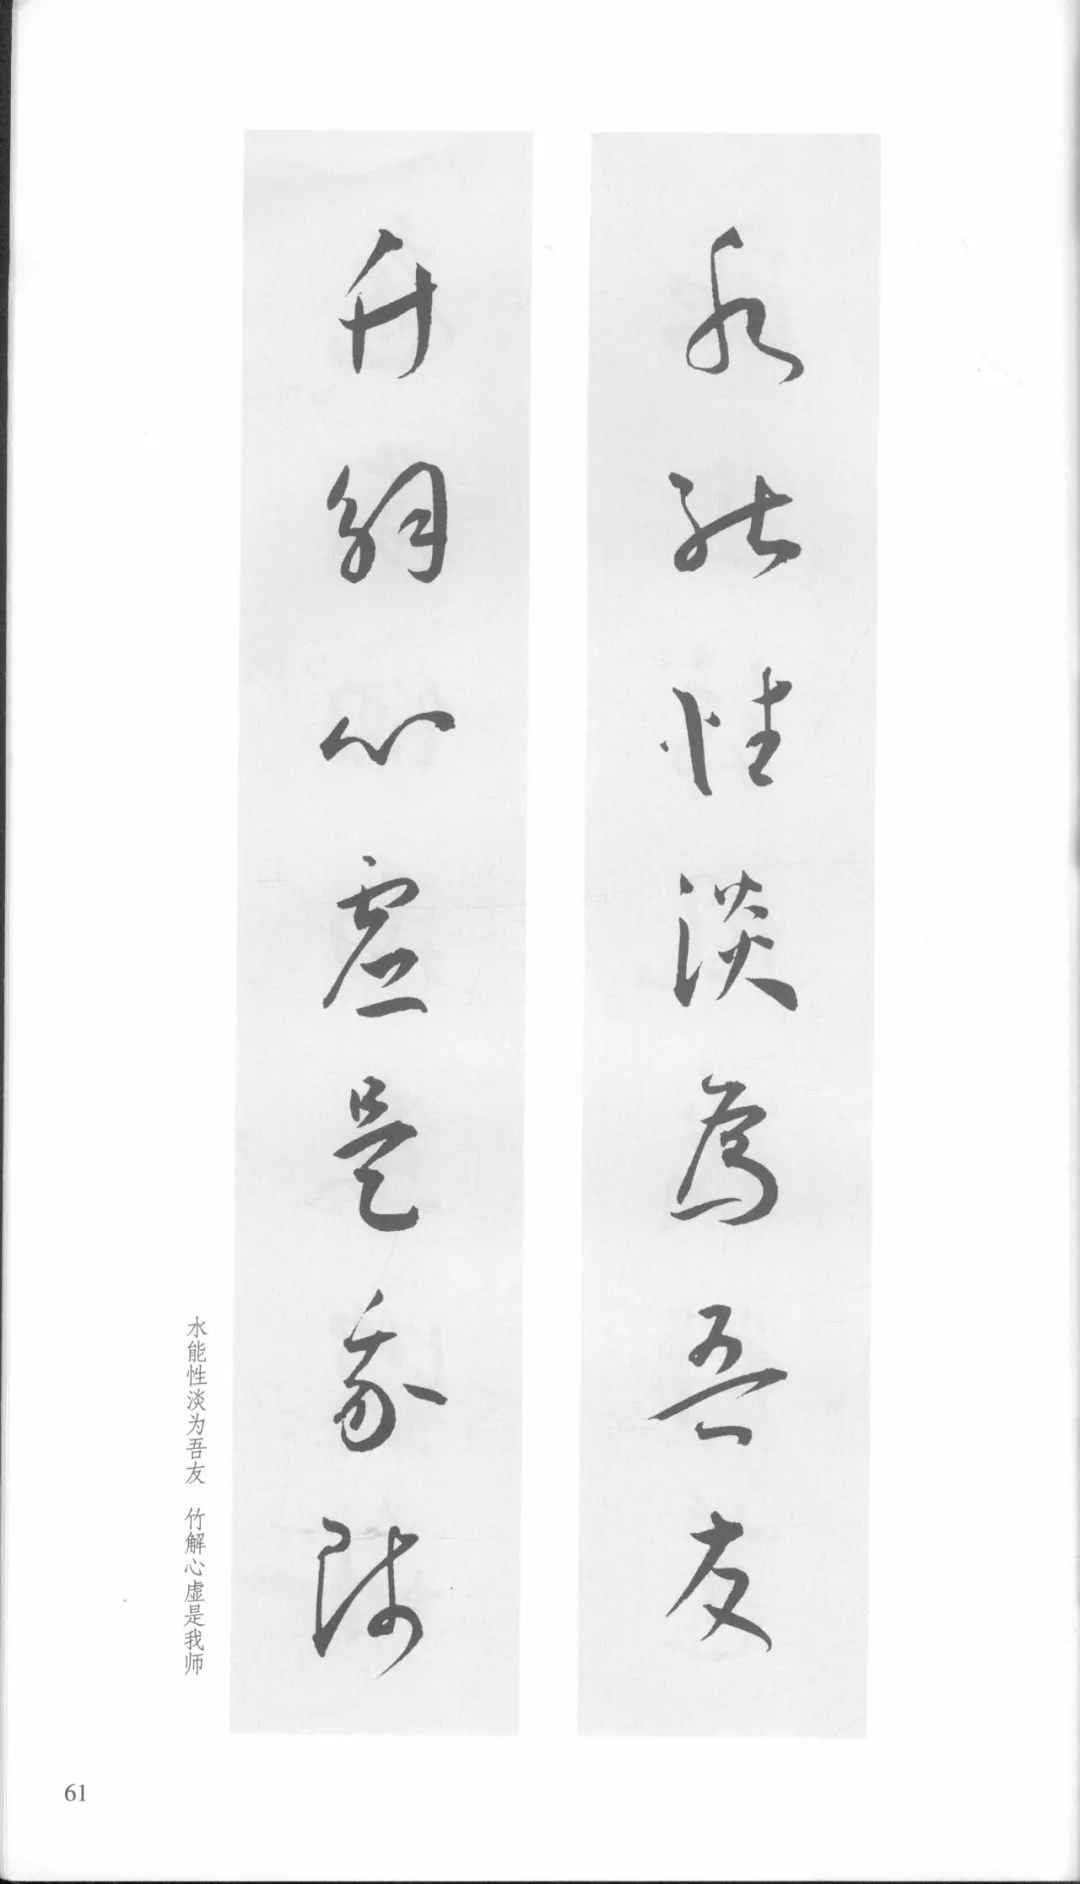 水能性淡為吾友
竹解心虛是我師
水能性淡为吾友 竹解心虚是我师
61